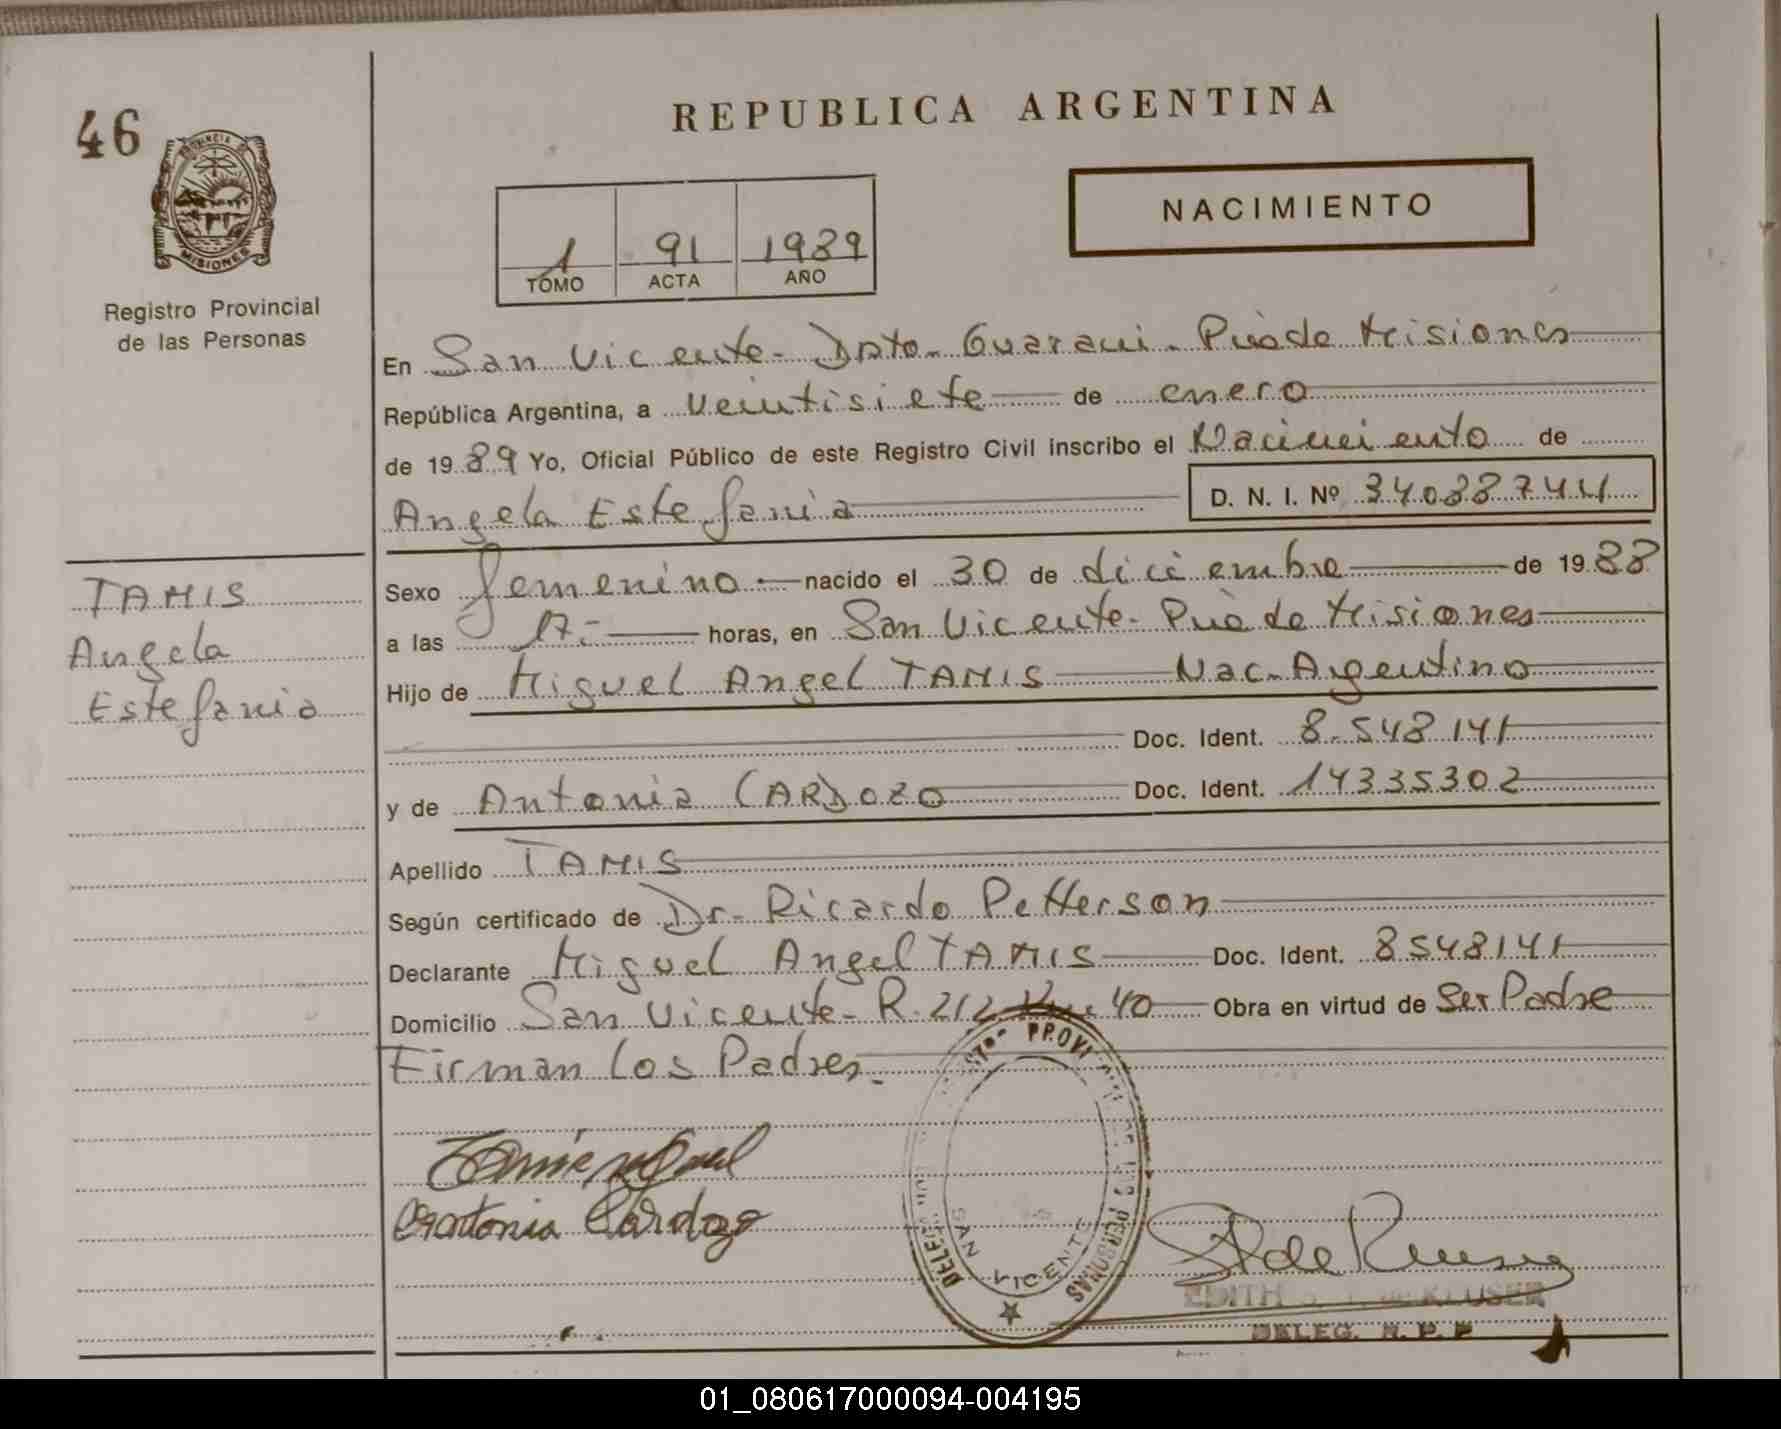 REPUBLICA ARGENTINA
46
PROVINCIA DE
MISIONES
Registro Provincial
de las Personas
NACIMIENTO
1 91 1989
TOMO ACTA AÑO
En San Vicente- Dpto- Guarani- Pciade Misiones
República Argentina, a Veintisiete de enero
de 1989 Yo, Oficial Público de este Registro Civil inscribo el Nacimiento de
Angela Estefania D. N. I. Nº 34088744
TAMIS
Angela
Estefania
Sexo femenino nacido el 30 de diciembre de 1988
a las 17.- horas, en San Vicente- Pciade Misiones
Hijo de Miguel Angel TAMIS Nac- Argentino
Doc. Ident. 8.548141
y de Antonia CARDOZO Doc. Ident. 14335302
Apellido TAMIS
Según certificado de Dr- Ricardo Petterson
Declarante Miguel Angel TAMIS Doc. Ident. 8548141
Domicilio San Vicente- R. 212 Km 40 Obra en virtud de Ser Padre
Firman los Padres.
Antonia Cardozo
DE LAS PERSONAS
SAN VICENTE
EDITH de KLUSER
DELEG. R. P. P
01_080617000094-004195